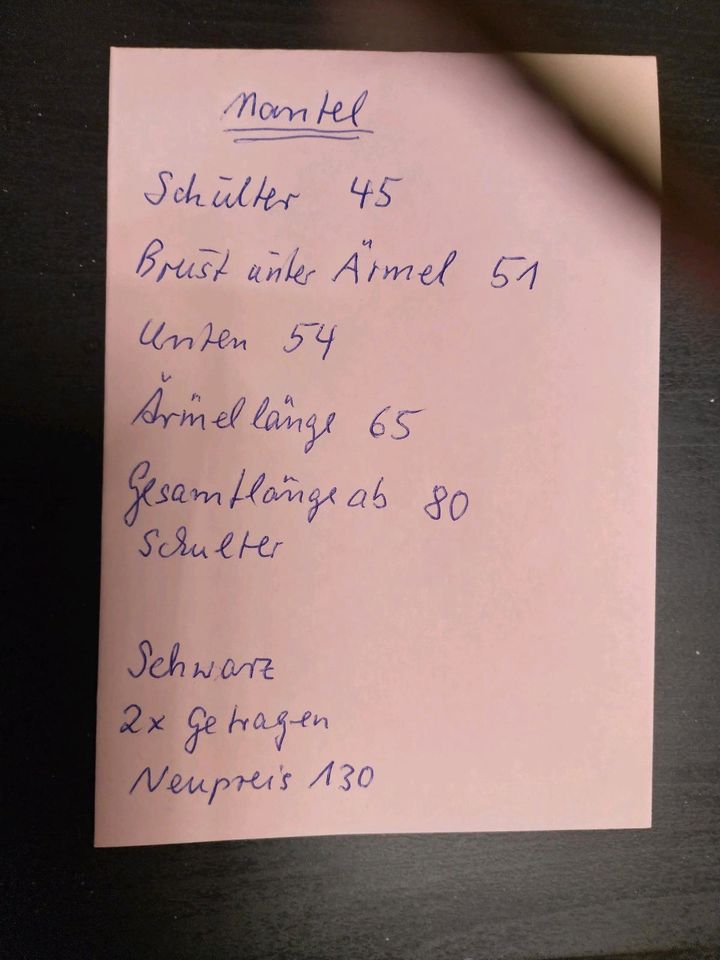 Mantel
Schulter 45
Brust unter Ärmel 51
Unten 54
Ärmellänge 65
Gesamtlänge ab 80
Schulter
Schwarz
2x Getragen
Neupreis 130